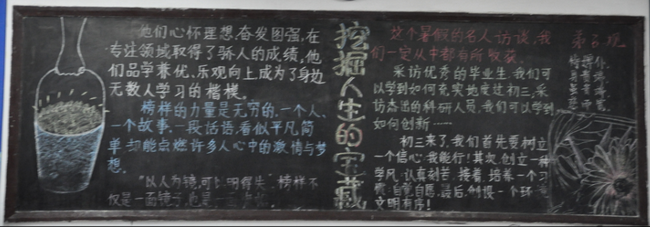 他们心怀理想、奋发图强,在
专注领域取得了骄人的成绩,他
们品学兼优、乐观向上成为了身边
无数人学习的楷模。
榜样的力量是无穷的,一个人、
一个故事,一段话语,看似平凡简
单却能点燃许多人心中的激情与梦
想。
"以人为镜,可以明得失",榜样不
仅是一面镜子,也是一
挖掘人生的宝藏
这个暑假的名人访谈,我
们一定从中都有所收获。
采访优秀的毕业生,我们可
以学到如何充实地度过初三,采
访杰出的科研人员,我们可以学到
如何创新……
初三来了,我们首先要树立
一个信心:我能行!其次,创立一种
学风:认真刻苦,接着,培养一个习
惯:自觉自愿,最后,创设一个环境:
文明有序!
第3现